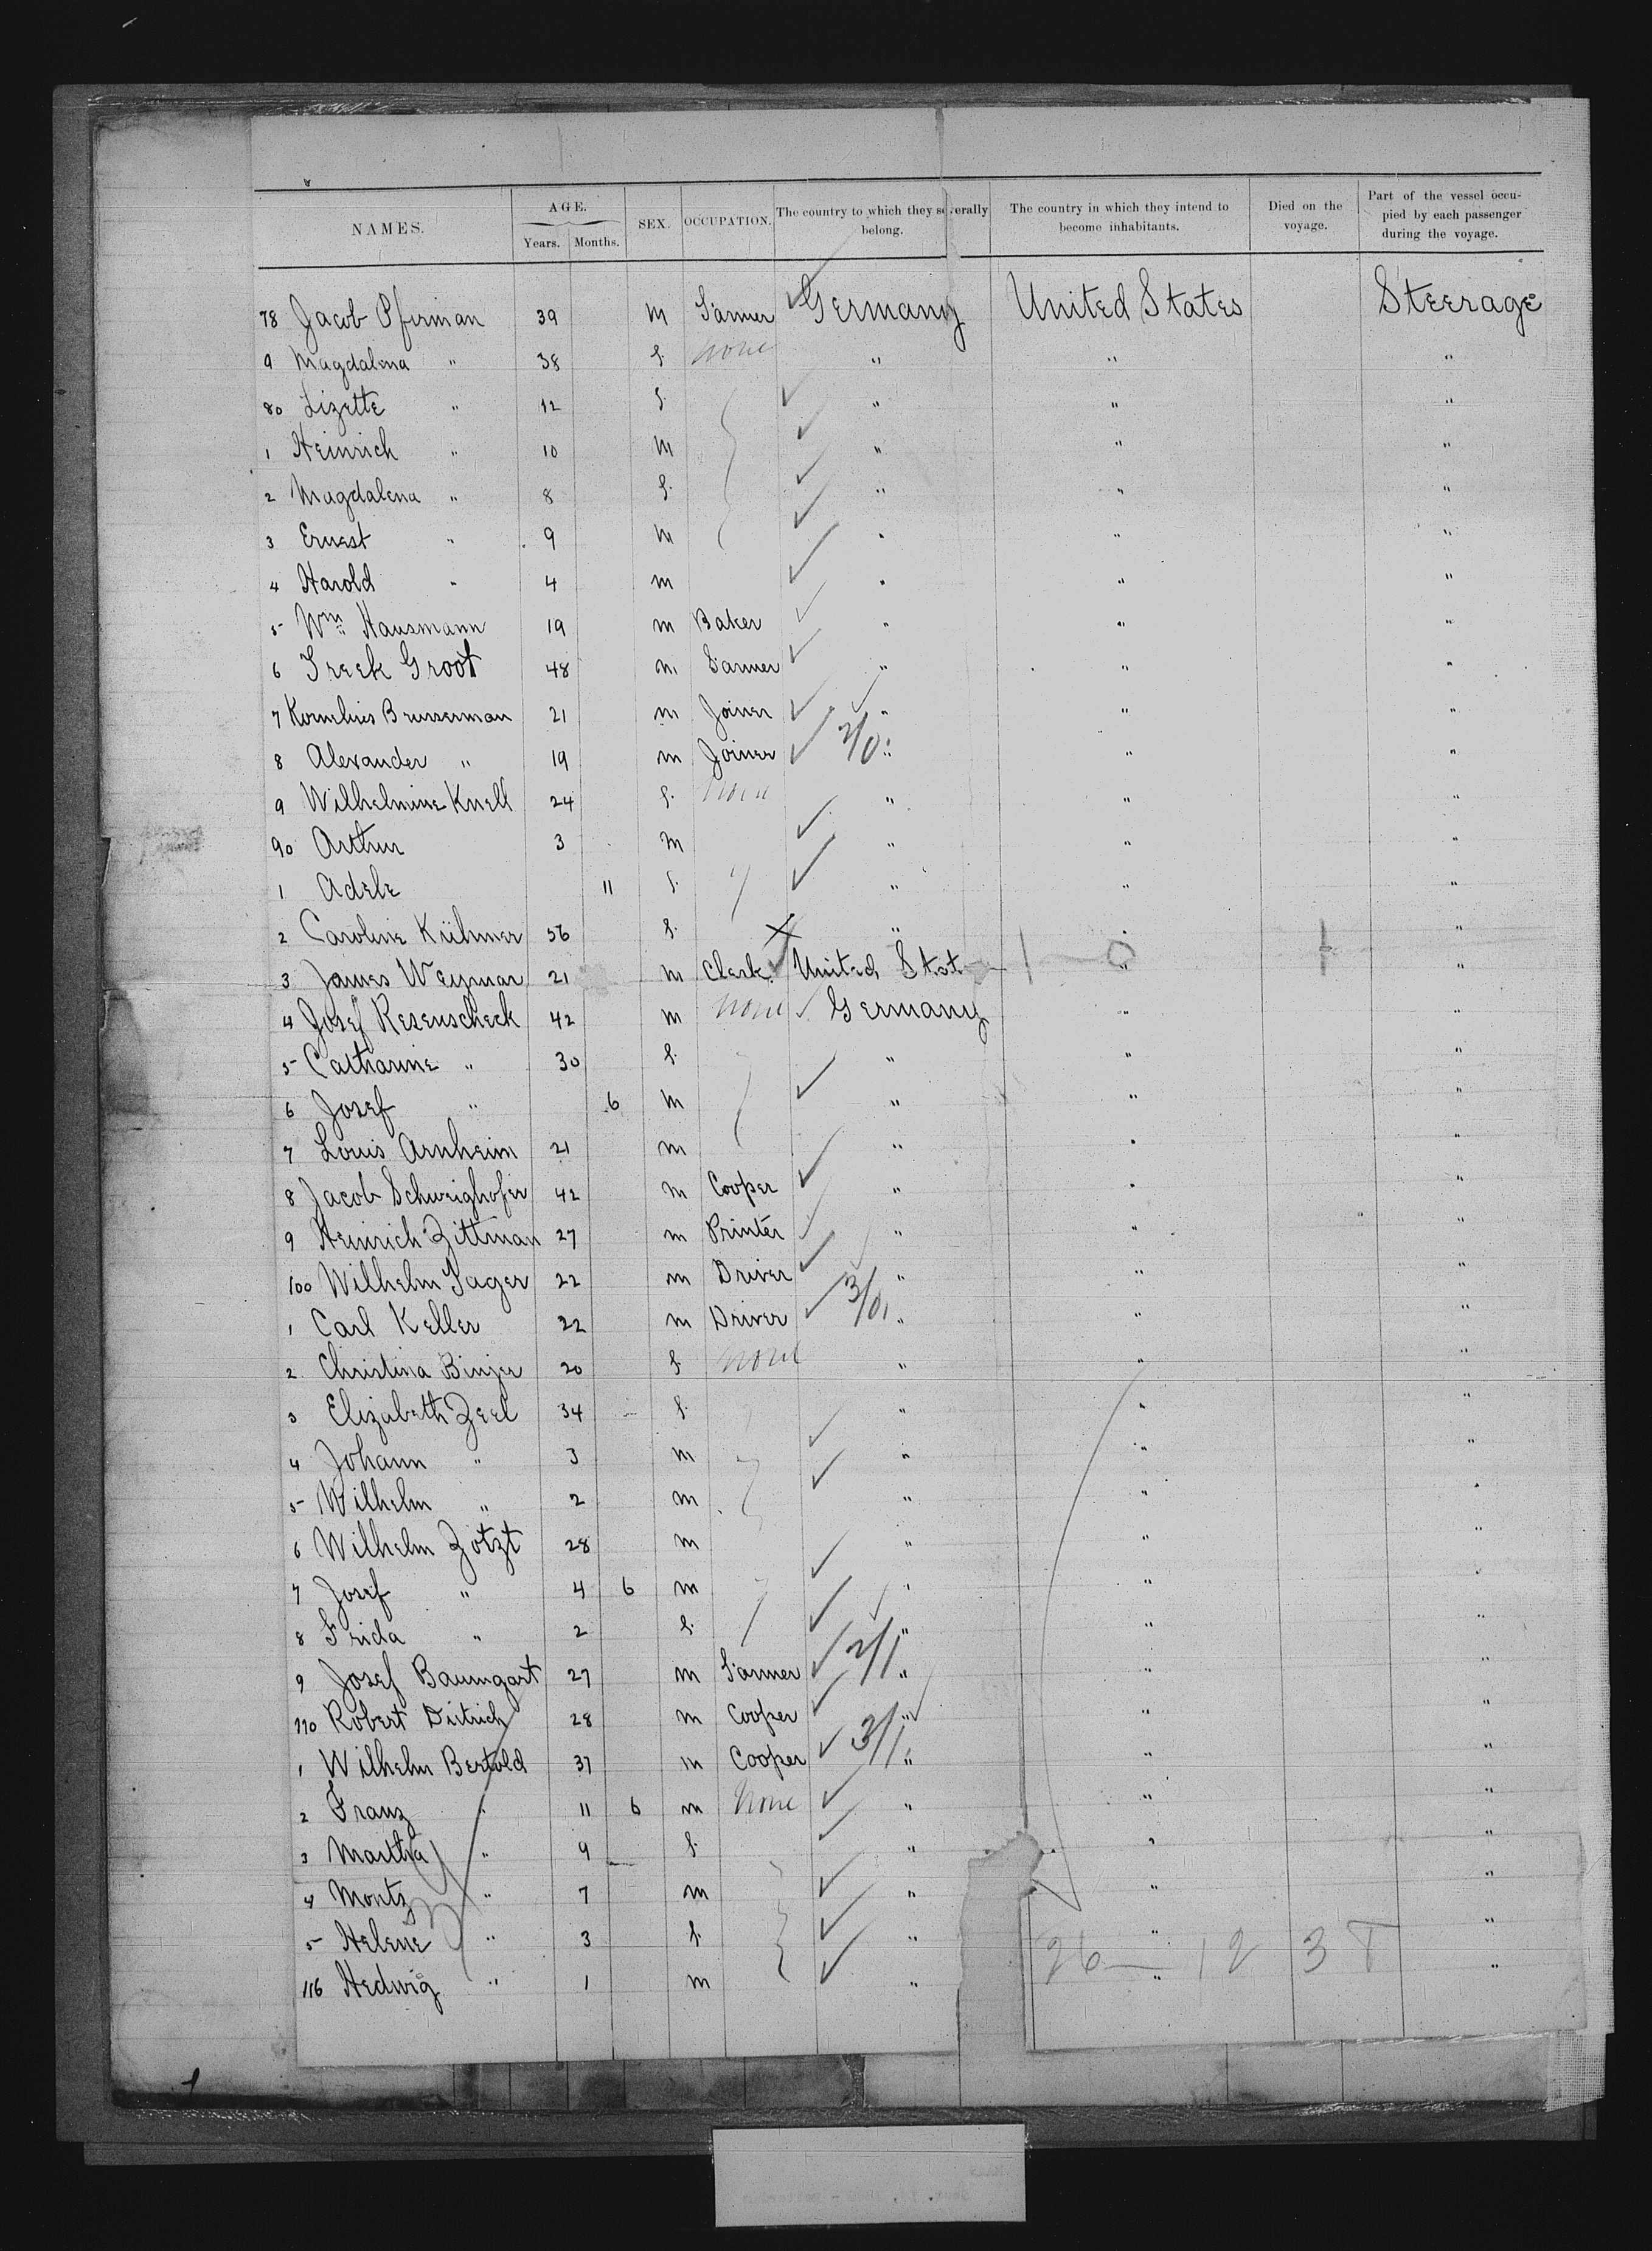 NAMES. AGE. Years. Months. SEX. OCCUPATION. The country to which they severally belong. The country in which they intend to become inhabitants. Died on the voyage. Part of the vessel occupied by each passenger during the voyage.
78 Jacob Pfirman 39 m Farmer Germany United States Steerage
9 Magdalena " 38 f. none " " "
80 Lizette " 12 f. " " "
1 Heinrich " 10 m " " "
2 Magdalena " 8 f. " " "
3 Ernest " 9 m " " "
4 Harold " 4 m " " "
5 Wm Hausmann 19 m Baker " " "
6 Freek Groot 48 m Farmer " " "
7 Kornelius Brusserman 21 m Joiner " " "
8 Alexander " 19 m Joiner 2/0 " " "
9 Wilhelmine Knell 24 f. none " " "
90 Arthur 3 m " " "
1 Adele 11 f. " " "
2 Caroline Kühmer 56 f. " " "
3 James Weymar 21 m Clerk United Stat. 1 0 " "
4 Josef Resenscheck 42 m none Germany " "
5 Catharine " 30 f. " " "
6 Josef " 6 m " " "
7 Louis Arnheim 21 m " " "
8 Jacob Schweighofer 42 m Cooper " " "
9 Heinrich Zittman 27 m Printer " " "
100 Wilhelm Sager 22 m Driver " " "
1 Carl Keller 22 m Driver 3/0 " " "
2 Christina Binzer 20 f none " " "
3 Elizabeth Zeel 34 f. " " "
4 Johann " 3 m " " "
5 Wilhelm " 2 m " " "
6 Wilhelm Zotzt 28 m " " "
7 Josef " 4 6 m " " "
8 Frida " 2 f. " " "
9 Josef Baumgart 27 m Farmer 2/1 " " "
110 Robert Dietrich 28 m Cooper " " "
1 Wilhelm Bertold 37 m Cooper 3/1 " " "
2 Franz " 11 6 m none " " "
3 Martha " 9 f. " " "
4 Moritz " 7 m " " "
5 Helene " 3 f. " " "
116 Hedwig " 1 m " 26 — " 12 3 8 "